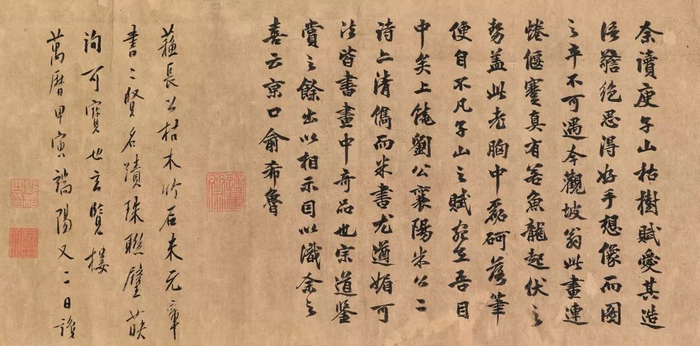 余讀庾子山枯樹賦愛其造
語警絕思得好手想像而圖
之卒不可遇今觀坡翁此畫連
蜷偃蹇真有若魚龍起伏之
勢蓋此老胸中磊砢落筆
便自不凡子山之賦宛在吾目
中矣上饒劉公襄陽米公二
詩亦清儁而米書尤遒媚可
法皆書畫中奇品也宗道鑒
賞之餘出以相示因以識余之
喜云京口俞希魯
蘇長公枯木竹石米元章
書二賢名蹟珠聯璧
洵可寶也玄覽樓
萬曆甲寅端陽又二日識